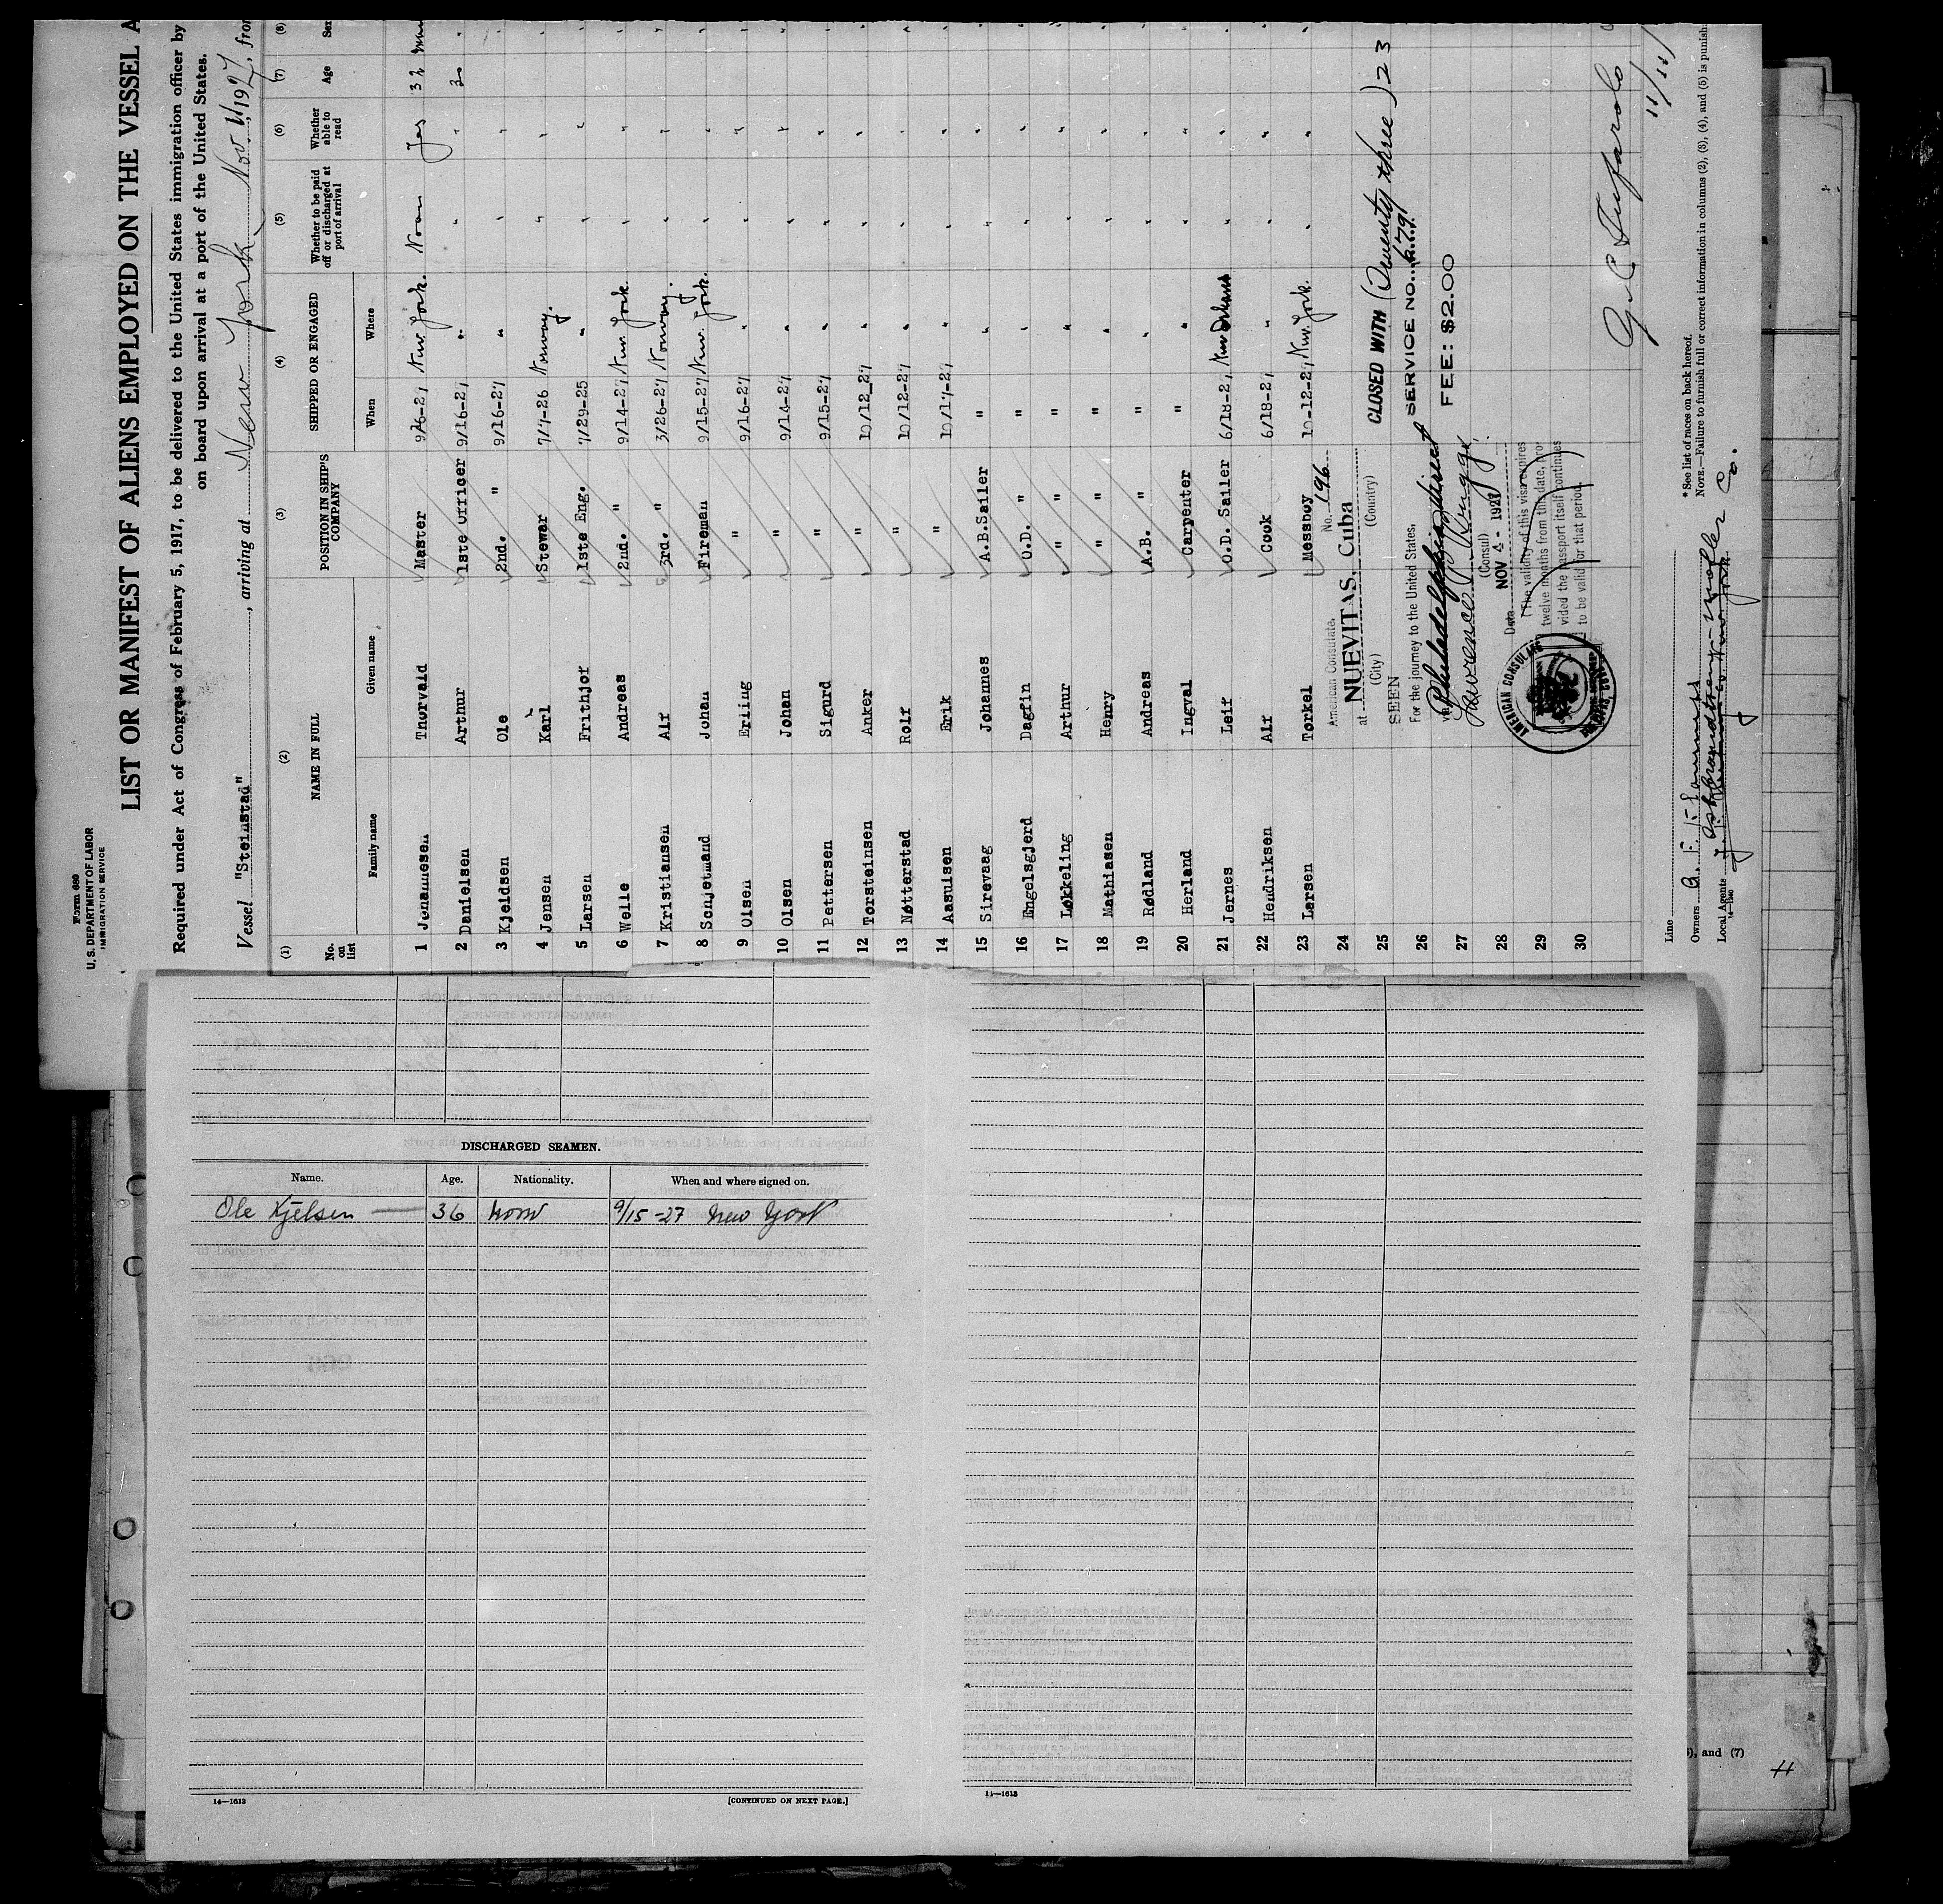 Form 680
U. S. DEPARTMENT OF LABOR
IMMIGRATION SERVICE
LIST OR MANIFEST OF ALIENS EMPLOYED ON THE VESSEL A
Required under Act of Congress of February 5, 1917, to be delivered to the United States immigration officer by
on board upon arrival at a port of the United States.
Vessel "Steinstad", arriving at New York, Nov 11 1927, from
(1) (2) (3) (4) (5) (6) (7) (8)
No. on list NAME IN FULL POSITION IN SHIP'S COMPANY SHIPPED OR ENGAGED Whether to be paid off or discharged at port of arrival Whether able to read Age Sex
Family name Given name When Where
1 Johannesen Thorvald Master 9/6-27 New York. Noon Yes 32
2 Danielsen Arthur 1ste Officer 9/16-27 " " " 30
3 Kjeldsen Ole 2nd. " 9/16-27 " " "
4 Jensen Karl Stewar 7/7-26 Norway. " "
5 Larsen Frithjof 1ste Eng. 7/29-25 " " "
6 Welle Andreas 2nd. " 9/14-27 New York. " "
7 Kristiansen Alf 3rd. " 3/26-27 Norway. " "
8 Schjetmand Johan Fireman 9/15-27 New York. " "
9 Olsen Erling " 9/16-27 " " "
10 Olsen Johan " 9/14-27 " " "
11 Pettersen Sigurd " 9/15-27 " " "
12 Torsteinsen Anker " 10/12_27 " " "
13 Nøtterstad Rolf " 10/12-27 " " "
14 Aasulsen Erik " 10/17-27 " " "
15 Sirevaag Johannes A.B.Sailer " " " "
16 Engelsgjerd Dagfin O.D. " " " " "
17 Løkkeling Arthur " " " " " "
18 Mathiasen Henry " " " " " "
19 Rødland Andreas A.B. " " " " "
20 Herland Ingval Carpenter " " " "
21 Jernes Leif O.D. Sailer 6/18-27 New Orleans " "
22 Hendriksen Alf Cook 6/18-27 " " "
23 Larsen Torkel Messboy 10-12-27 New York. " "
24
25
26
27
28
29
30
American Consulate, No. 196
at NUEVITAS, Cuba
(City) (Country)
SEEN
For the journey to the United States,
via Philadelphia direct
(Consul)
Date NOV 4 - 1927
(The validity of this visa expires
twelve months from this date, pro-
vided the passport itself continues
to be valid for that period.)
AMERICAN CONSULATE
CLOSED WITH (Twenty three) 23
SERVICE NO. 679
FEE: $2.00
11/11/
Line
Owners
Local Agents
14—1240
* See list of races on back hereof.
NOTE.—Failure to furnish full or correct information in columns (2), (3), (4), and (5) is punish
DISCHARGED SEAMEN.
Name. Age. Nationality. When and where signed on.
Ole Kjelsen 36 Norw 9/15-27 New York
14—1613 [CONTINUED ON NEXT PAGE.]
14—1613
), and (7)